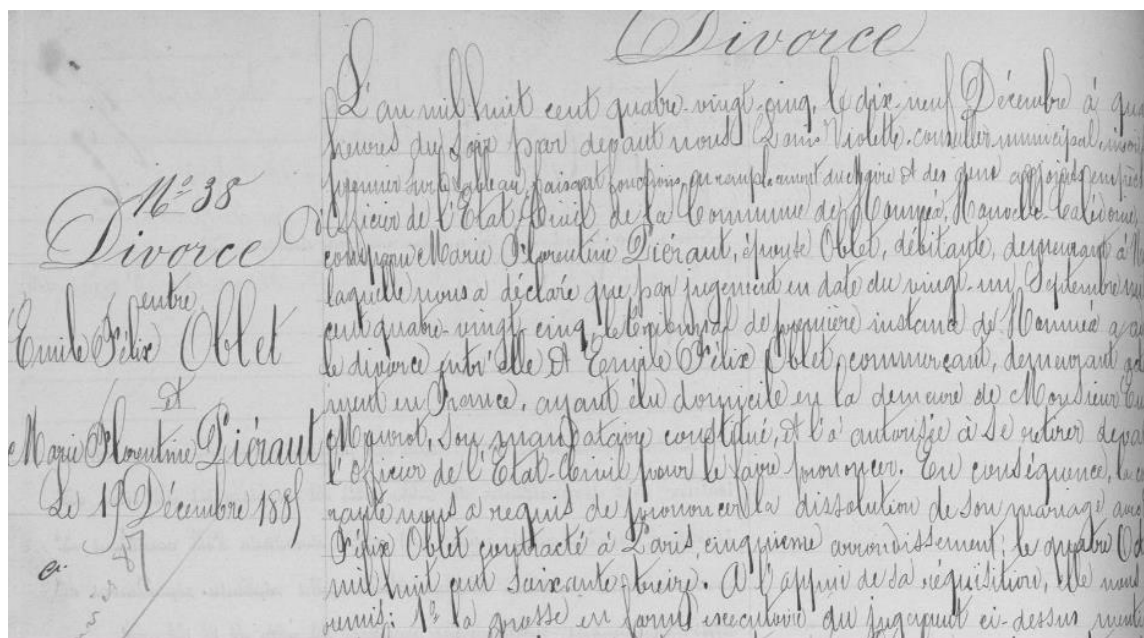 Divorce
N° 38
Divorce
entre
Emile Félix Oblet
et
Marie Florentine Piéraut
Le 19 Décembre 1885
L'an mil huit cent quatre-vingt-cinq, le dix-neuf Décembre à
heures du soir par devant nous Louis Violette, conseiller municipal,
premier sur le tableau, faisant fonctions, en remplacement du Maire et des
d'Officier de l'Etat Civil de la Commune de Nouméa, Nouvelle-Calédonie,
comparu Marie Florentine Piéraut, épouse Oblet, débitante, demeurant à
laquelle nous a déclaré que par jugement en date du vingt-un Septembre
cent quatre-vingt-cinq, le tribunal de première instance de Nouméa a
le divorce entr'elle et Emile Félix Oblet, commerçant, demeurant
ment en France, ayant élu domicile en la demeure de Monsieur
Mourot, son mandataire constitué, et l'a autorisée à se retirer
l'Officier de l'Etat-Civil pour le faire prononcer. En conséquence, la
rante nous a requis de prononcer la dissolution de son mariage avec
Félix Oblet contracté à Paris, cinquième arrondissement; le quatre
mil huit cent soixante treize. A l'appui de sa réquisition, elle nous
remis: 1° la grosse en forme exécutoire du jugement ci-dessus